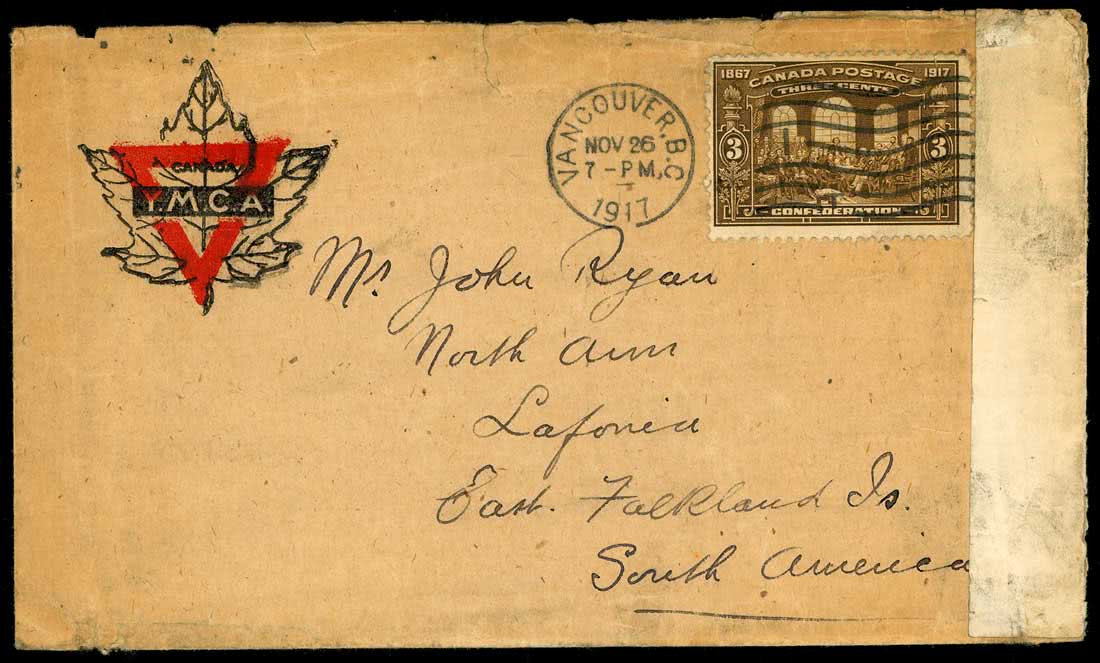 CANADA
Y.M.C.A
VANCOUVER, B.C.
NOV 26
7 - PM
1917
1867 CANADA POSTAGE 1917
THREE CENTS
3 3
CONFEDERATION
Mr. John Ryan
North Arm
Lafonia
East. Falkland Is.
South America